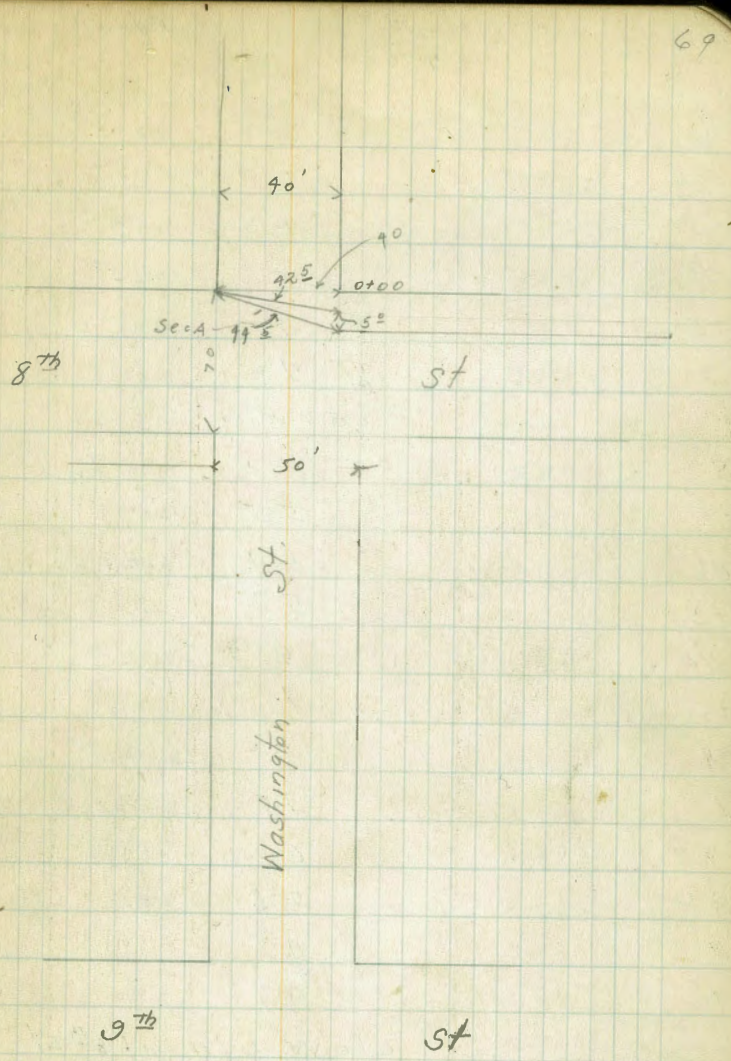 69
40'
40
42 5
0+00
Sec A
44 5
5 0
70
8 th
St
50'
Washington St.
9 th
St